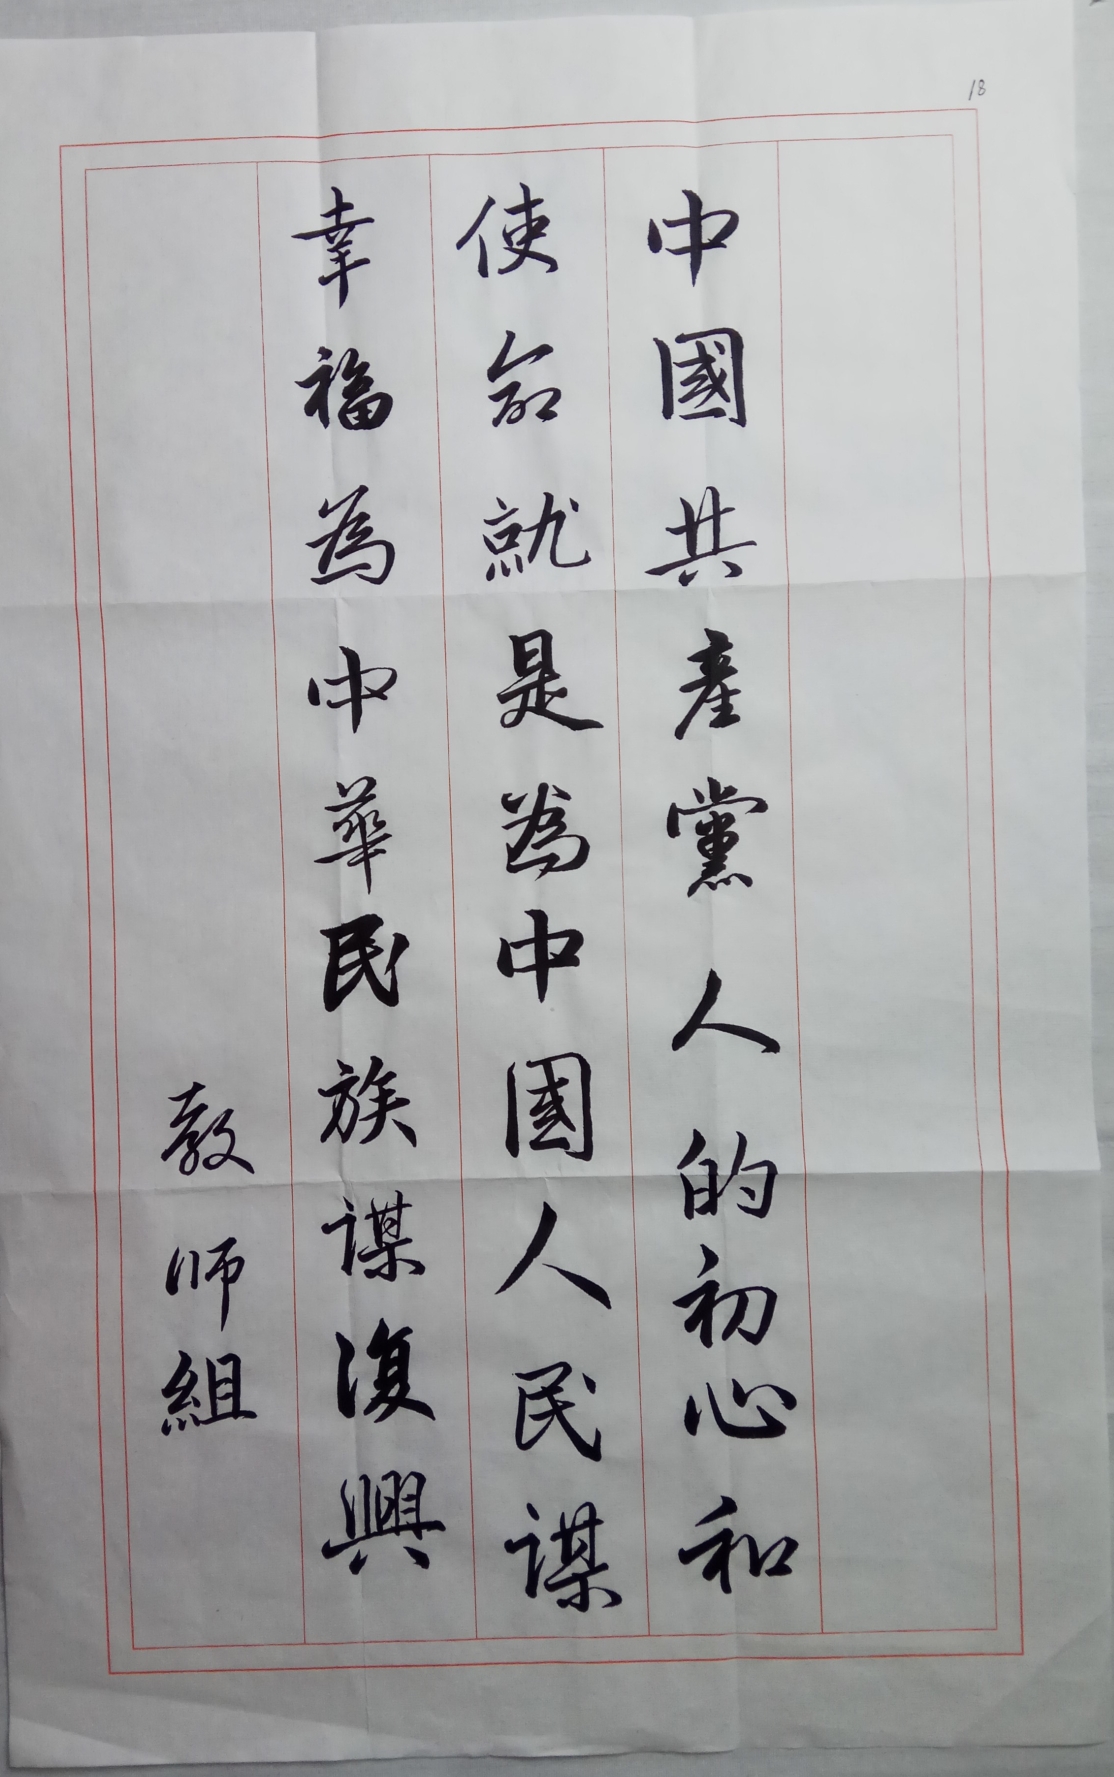 18
中國共產黨人的初心和
使命就是為中國人民謀
幸福為中華民族謀復興
教師組